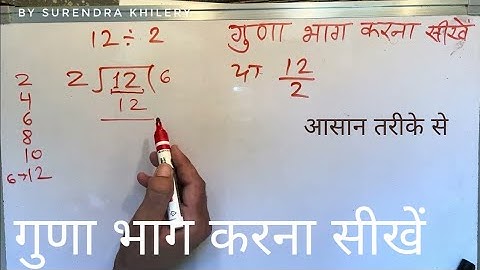 BY SURENDRA KHILERY
12 ÷ 2
गुणा भाग करना सीखें
या 12/2
2
4
6
8
10
6→12
2 ) 12 ( 6
12
आसान तरीके से
गुणा भाग करना सीखें